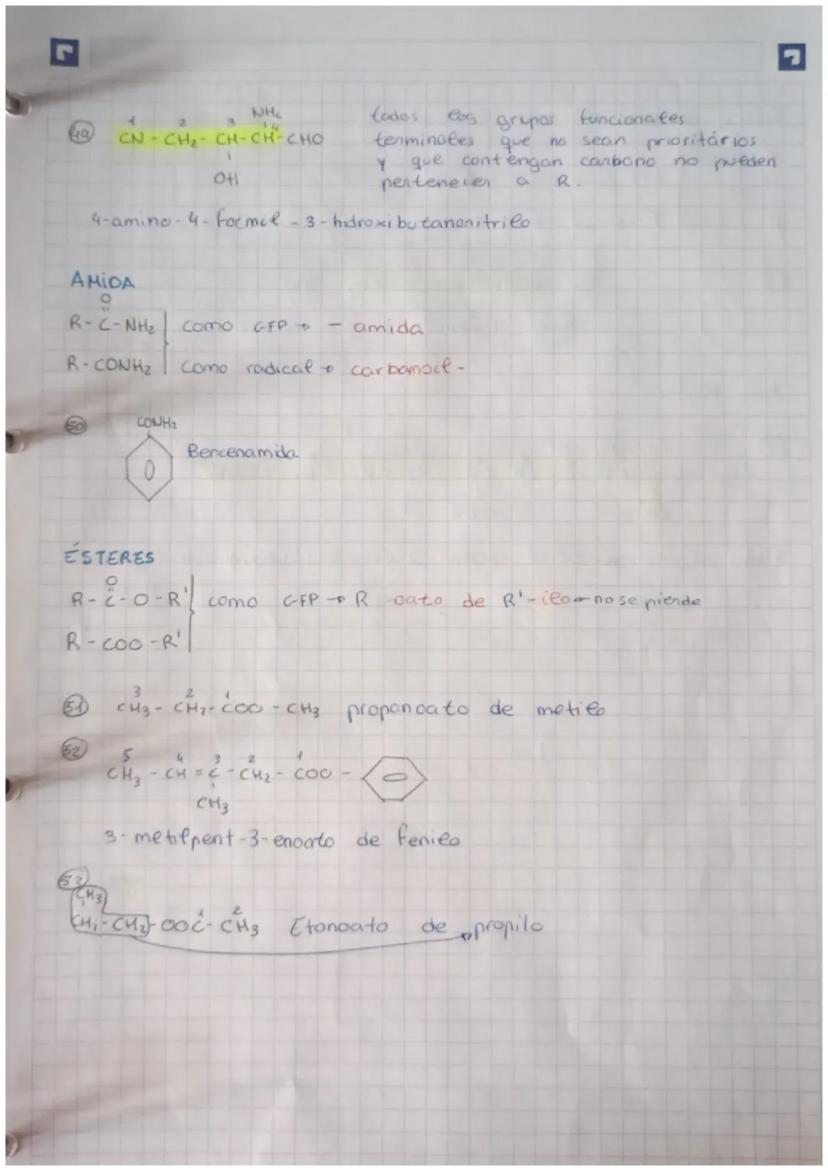 49 CN - CH2 - CH - CH - CHO
1 2 3 4
NH2
OH
todos los grupos funcionales
terminales que no sean prioritários
y que contengan carbono no pueden
pertenecer a R.
4-amino-4-formil-3-hidroxibutanonitrilo
AMIDA
O
R-C-NH2 como GFP → - amida
R-CONH2 como radical → carbamoil-
50 CONH2
Bencenamida
ÉSTERES
O
R-C-O-R' como GFP → R -oato de R'-ilo → no se pierde
R-COO-R'
3 2 1
51 CH3 - CH2 - COO - CH3 propanoato de metilo
52
5 4 3 2 1
CH3 - CH = C - CH2 - COO -
CH3
3-metilpent-3-enoato de fenilo
53
CH3
1 2
CH2 - CH2 - OOC - CH3 Etanoato de propilo